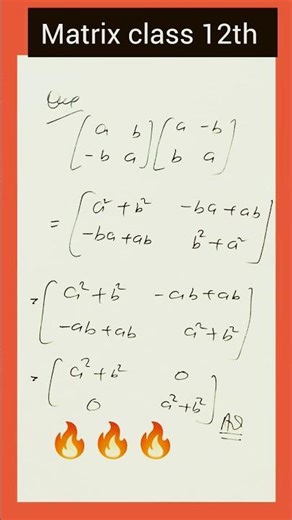 Matrix class 12th
Que
[a b
-b a] [a -b
b a]
= [a² + b² -ba + ab
-ba + ab b² + a²]
= [a² + b² -ab + ab
-ab + ab a² + b²]
= [a² + b² 0
0 a² + b²] AS